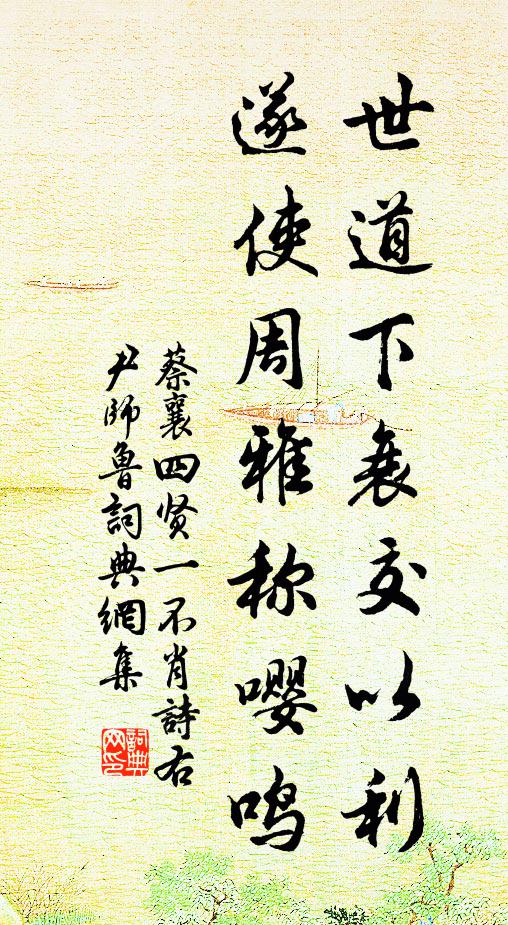 世道下衰交以利
遂使周雅称嘤鸣
蔡襄四贤一不肖詩右
尹師魯詞典網集
詞典
网印